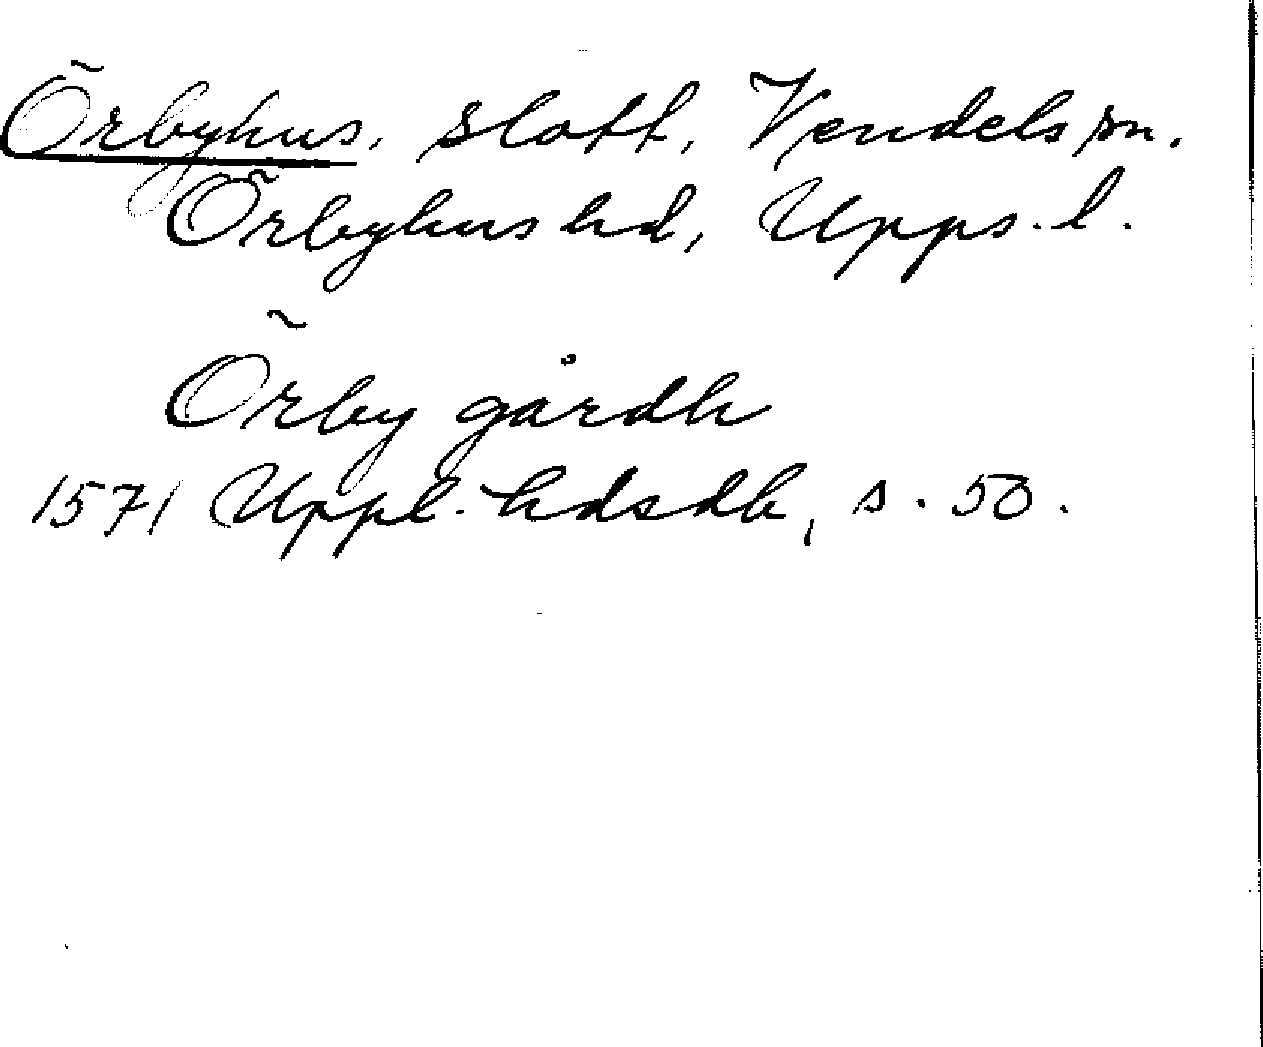 Örbyhus, slott, Vendels sn.
Örbyhus hd, Upps. l.
Örby gårdh
1571 Uppl. hdsdb, s. 50.